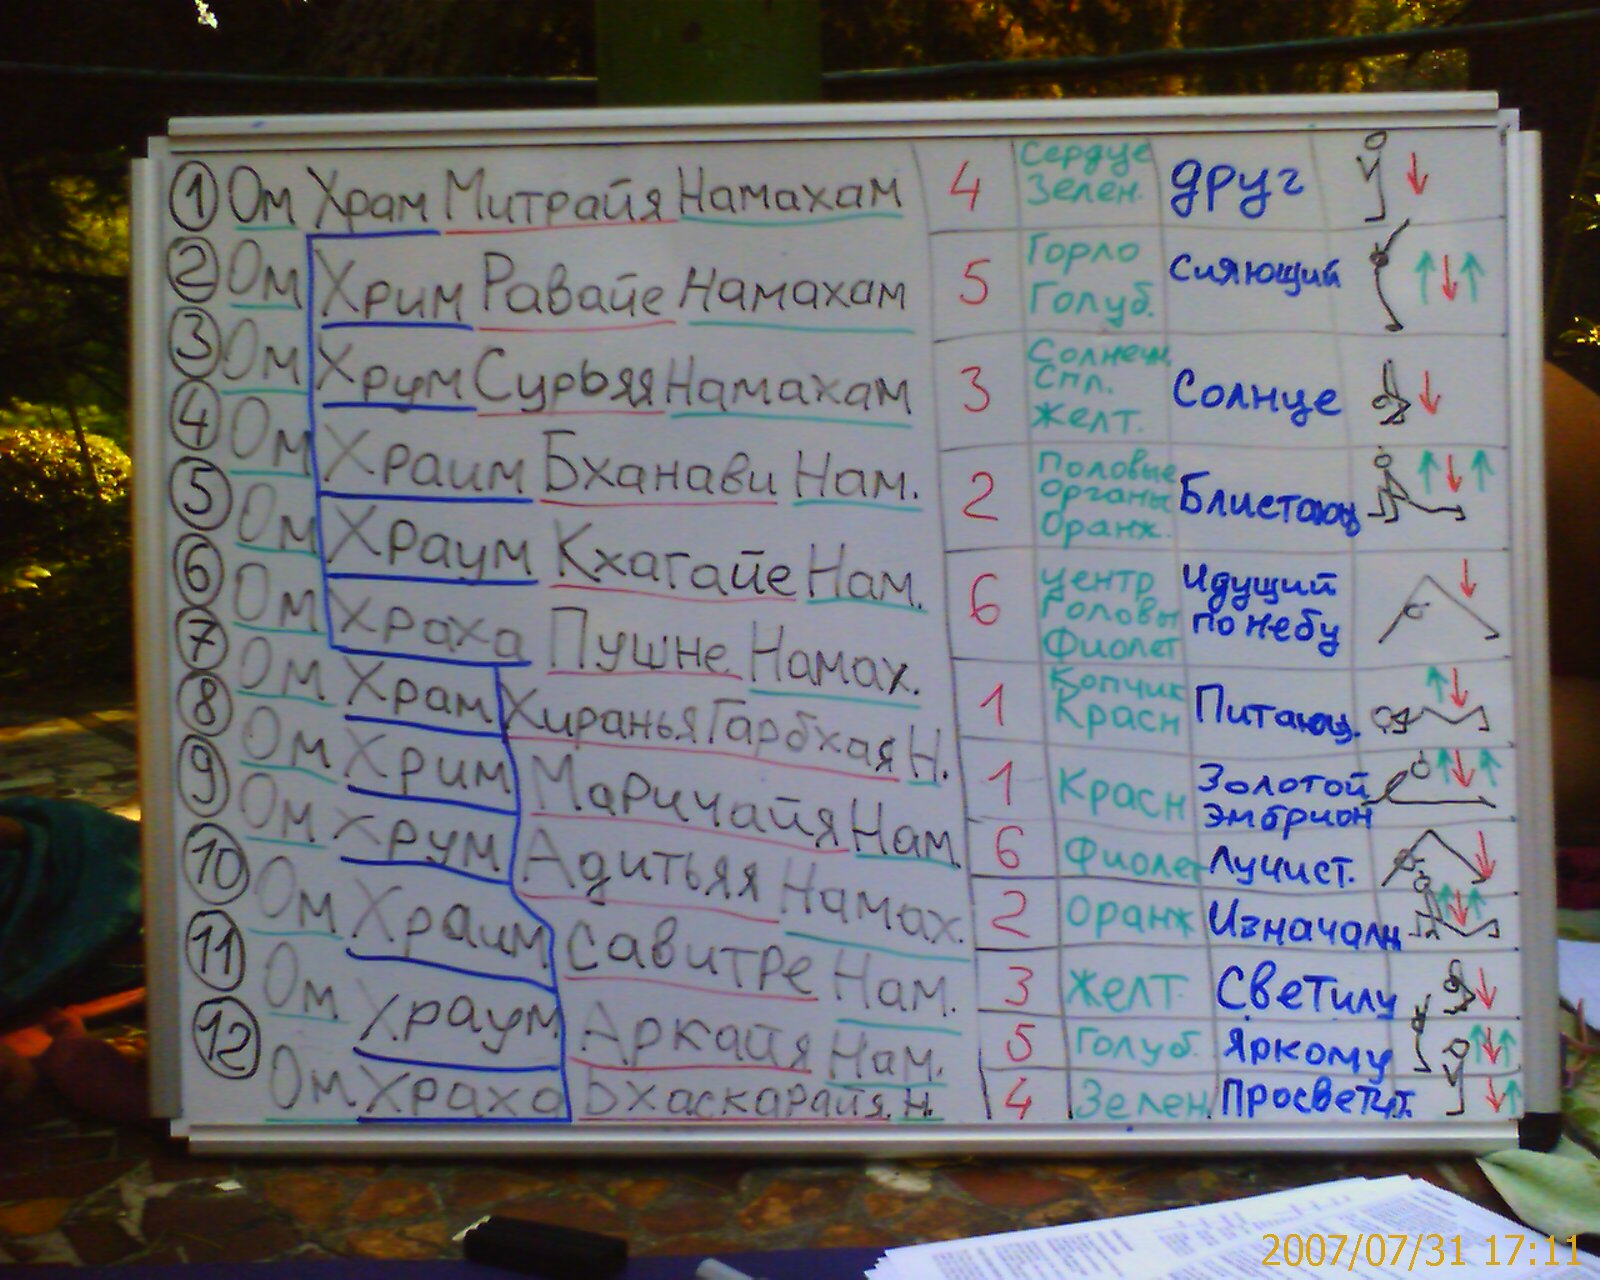 1 Ом Храм Митрайя Намахам 4 Сердце Зелен. друг
2 Ом Хрим Равайе Намахам 5 Горло Голуб. Сияющий
3 Ом Хрум Сурьяя Намахам 3 Солнечн. Спл. Желт. Солнце
4 Ом Храим Бханави Нам. 2 Половые органы Оранж. Блистающ
5 Ом Храум Кхагайе Нам. 6 Центр Головы Фиолет Идущий по небу
6 Ом Храха Пушне Намах. 1 Копчик Красн Питающ.
7 Ом Храм Хиранья Гарбхая Н. 1 Красн Золотой эмбрион
8 Ом Хрим Маричайя Нам 6 Фиолет Лучист.
9 Ом Хрум Адитьяя Намах. 2 Оранж Изначалн
10 Ом Храим Савитре Нам. 3 Желт. Светилу
11 Ом Храум Аркайя Нам. 5 Голуб. Яркому
12 Ом Храха Бхаскарайя. Н. 4 Зелен. Просветит.
2007/07/31 17:11